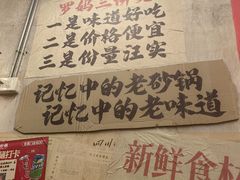 一是味道好吃
二是价格便宜
三是份量汪实
记忆中的老砂锅
记忆中的老味道
打卡
四川
新鲜食材